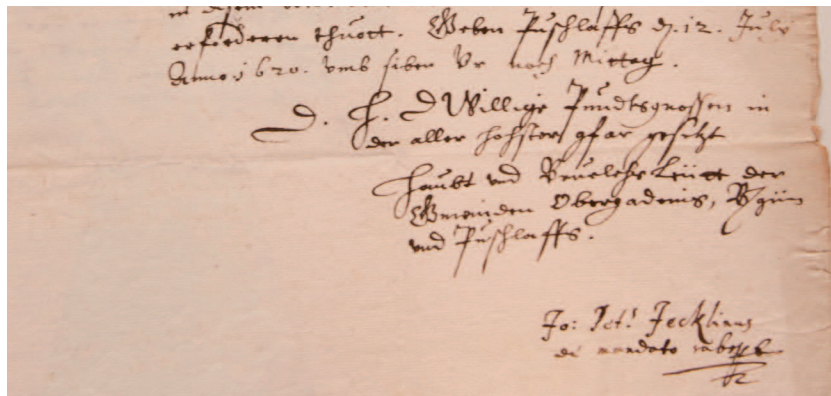 erforderen thuott. Geben Puschlaffs d. 12. July
Anno 1620. vmb siben Vr nach Mittag.
D. H. D Willige Pundtsgnossen in
der aller hohsten gfar gesitzt
Haubt vnd Beuelchs Leütt der
Gmeinden Obergadenis, Bgün
vnd Puschlaffs.
Jo: Pet: Jecklinus
de mandato